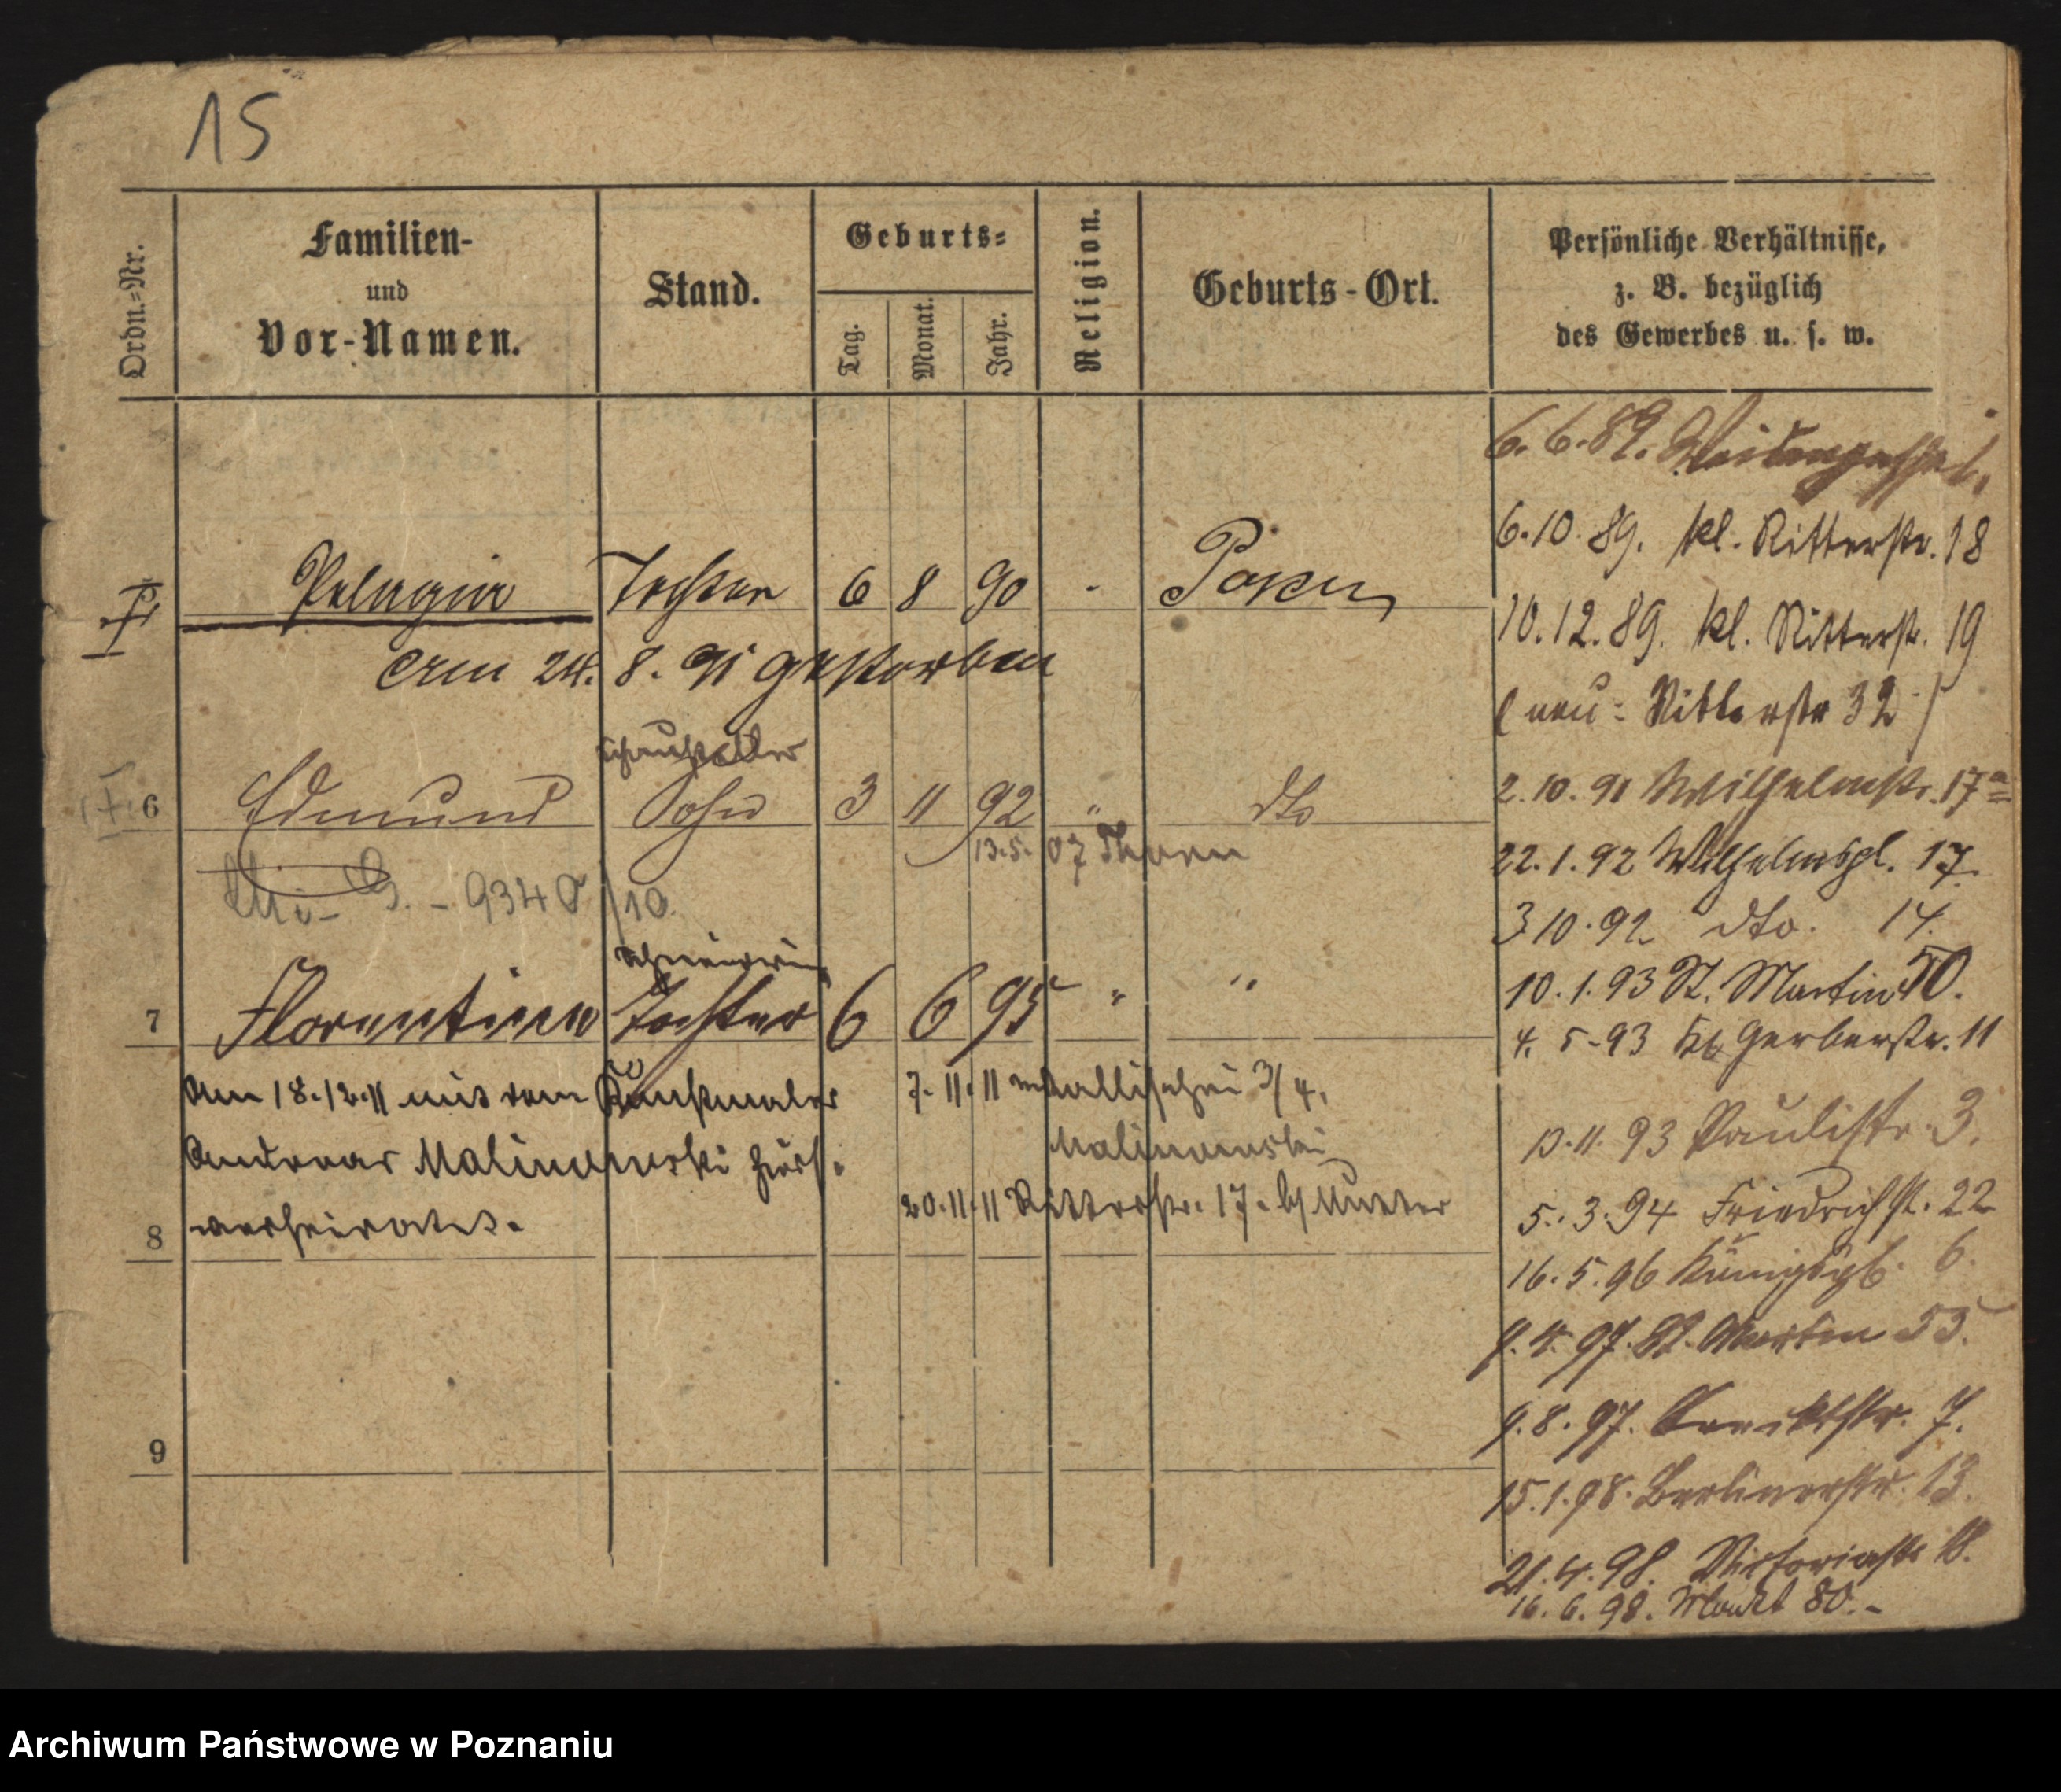 15
Ordn.-Nr.
Familien-
und
Vor-Namen.
Stand.
Geburts-
Tag.
Monat.
Jahr.
Religion.
Geburts-Ort.
Persönliche Verhältnisse,
z. B. bezüglich
des Gewerbes u. s. w.
6.6.89.
6.10.89. kl. Ritterstr. 18
Pelagia Tochter 6 8 90 - Posen
10.12.89. kl. Ritterstr. 19
am 24. 8. 91 gestorben
(neu: Ritterstr 32)
2.10.91 Wilhelmstr. 17a
6 Edmund Sohn 3 11 92 " dto
13.5.07 Thorn
22.1.92 Wilhelmspl. 17.
9340/10.
3 10.92 dto. 14.
10.1.93 St. Martin 50.
7 Florentina Tochter 6 6 95 " "
4. 5-93 Kl Gerberstr. 11
am 18.12.11 mit dem Kunstmaler
7.11.11 3/4.
Andreas Malinowski
Malinowski
13.11.93 Paulistr. 3.
20.11.11 Ritterstr. 17. b/ Mutter
5.3.94 Friedrichst. 22
8 verheiratet.
16.5.96 Königspl. 6.
9.4.97. St. Martin 55.
9.8.97. 7.
9
15.1.98. Berlinerstr. 13.
21.4.98. Victoriastr
16.6.98. Markt 80.-
Archiwum Państwowe w Poznaniu